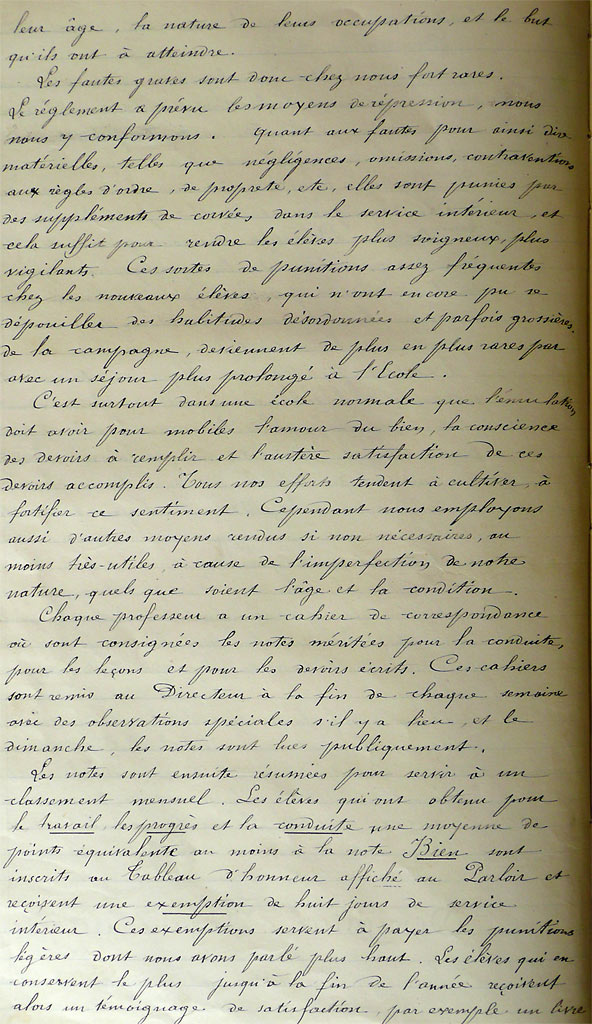 leur âge, la nature de leurs occupations, et le but
qu'ils ont à atteindre.
Les fautes graves sont donc chez nous fort rares.
Le réglement a prévu les moyens de répression, nous
nous y conformons. Quant aux fautes pour ainsi dire
matérielles, telles que négligences, omissions, contraventions
aux règles d'ordre, de propreté, etc, elles sont punies par
des suppléments de corvées dans le service intérieur, et
cela suffit pour rendre les élèves plus soigneux, plus
vigilants. Ces sortes de punitions assez fréquentes
chez les nouveaux élèves, qui n'ont encore pu se
dépouiller des habitudes désordonnées et parfois grossières,
de la campagne, deviennent de plus en plus rares par
avec un séjour plus prolongé à l'Ecole.
C'est surtout dans une école normale que l'émulation
doit avoir pour mobiles l'amour du bien, la conscience
des devoirs à remplir et l'austère satisfaction de ces
devoirs accomplis. Tous nos efforts tendent à cultiver, à
fortifier ce sentiment. Cependant nous employons
aussi d'autres moyens rendus si non nécessaires, au
moins très-utiles, à cause de l'imperfection de notre
nature, quels que soient l'âge et la condition.
Chaque professeur a un cahier de correspondance
où sont consignées les notes méritées pour la conduite,
pour les leçons et pour les devoirs écrits. Ces cahiers
sont remis au Directeur à la fin de chaque semaine
avec des observations spéciales s'il y a lieu, et le
dimanche, les notes sont lues publiquement.
Les notes sont ensuite résumées pour servir à un
classement mensuel. Les élèves qui ont obtenu pour
le travail, les progrès et la conduite une moyenne de
points équivalente au moins à la note Bien sont
inscrits au Tableau d'honneur affiché au Parloir et
reçoivent une exemption de huit jours de service
intérieur. Ces exemptions servent à payer les punitions
légères dont nous avons parlé plus haut. Les élèves qui en
conservent le plus jusqu'à la fin de l'année reçoivent
alors un témoignage de satisfaction, par exemple un livre